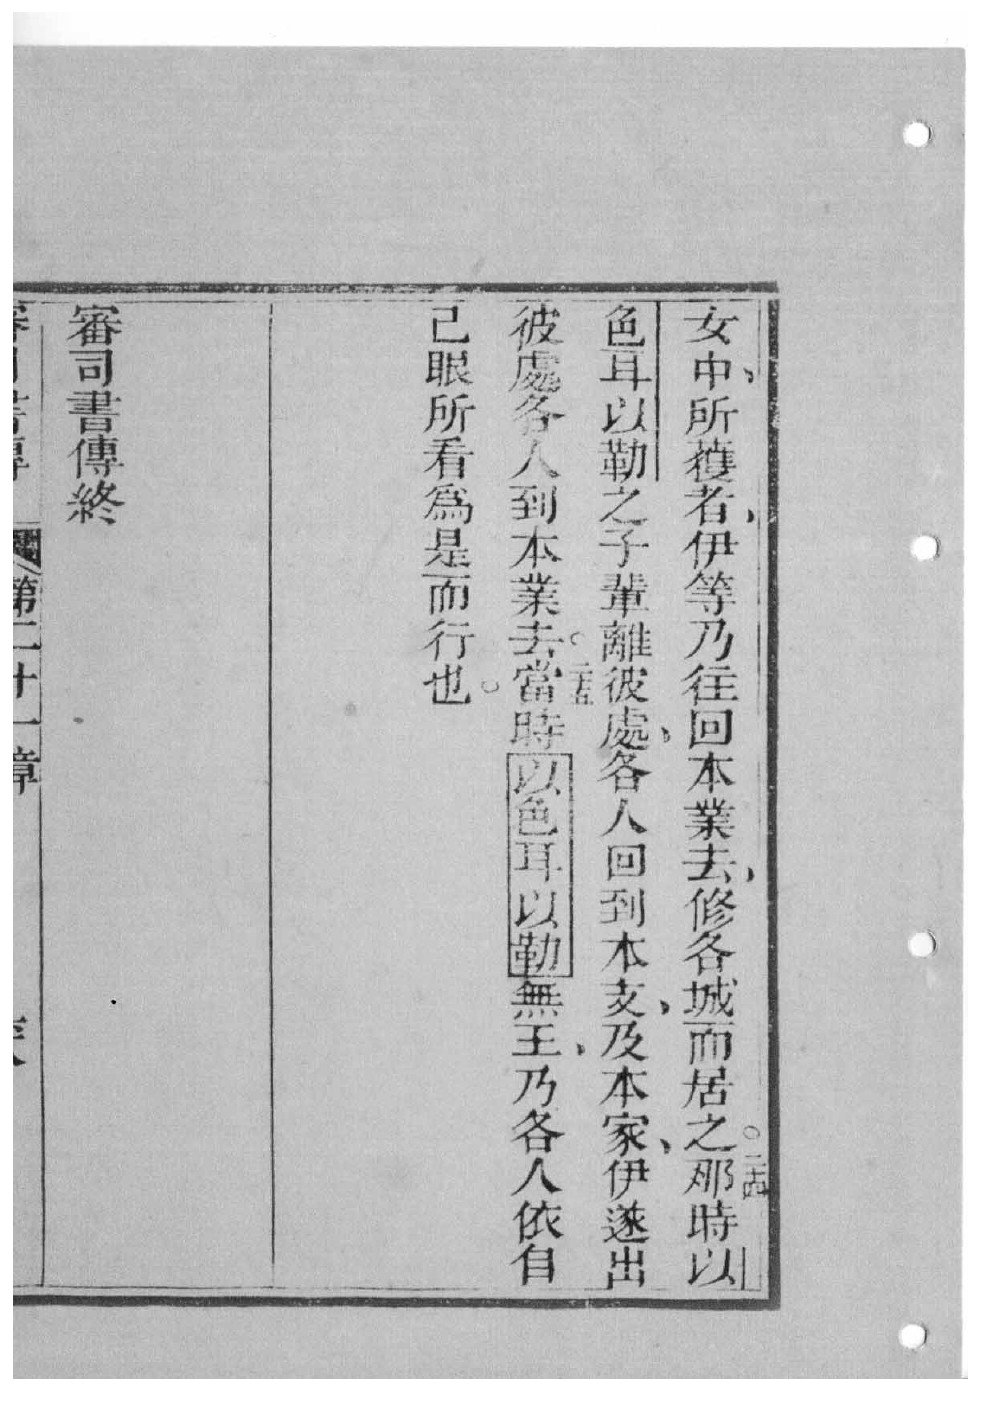 女中、所獲者、伊等乃往回本業去、修各城而居之。二十四那時以
色耳以勒之子輩離彼處、各人回到本支、及本家、伊遂出
彼處各人到本業去。二十五當時以色耳以勒無王、乃各人依自
己眼所看爲是而行也。
審司書傳終
審司書傳 第二十一章